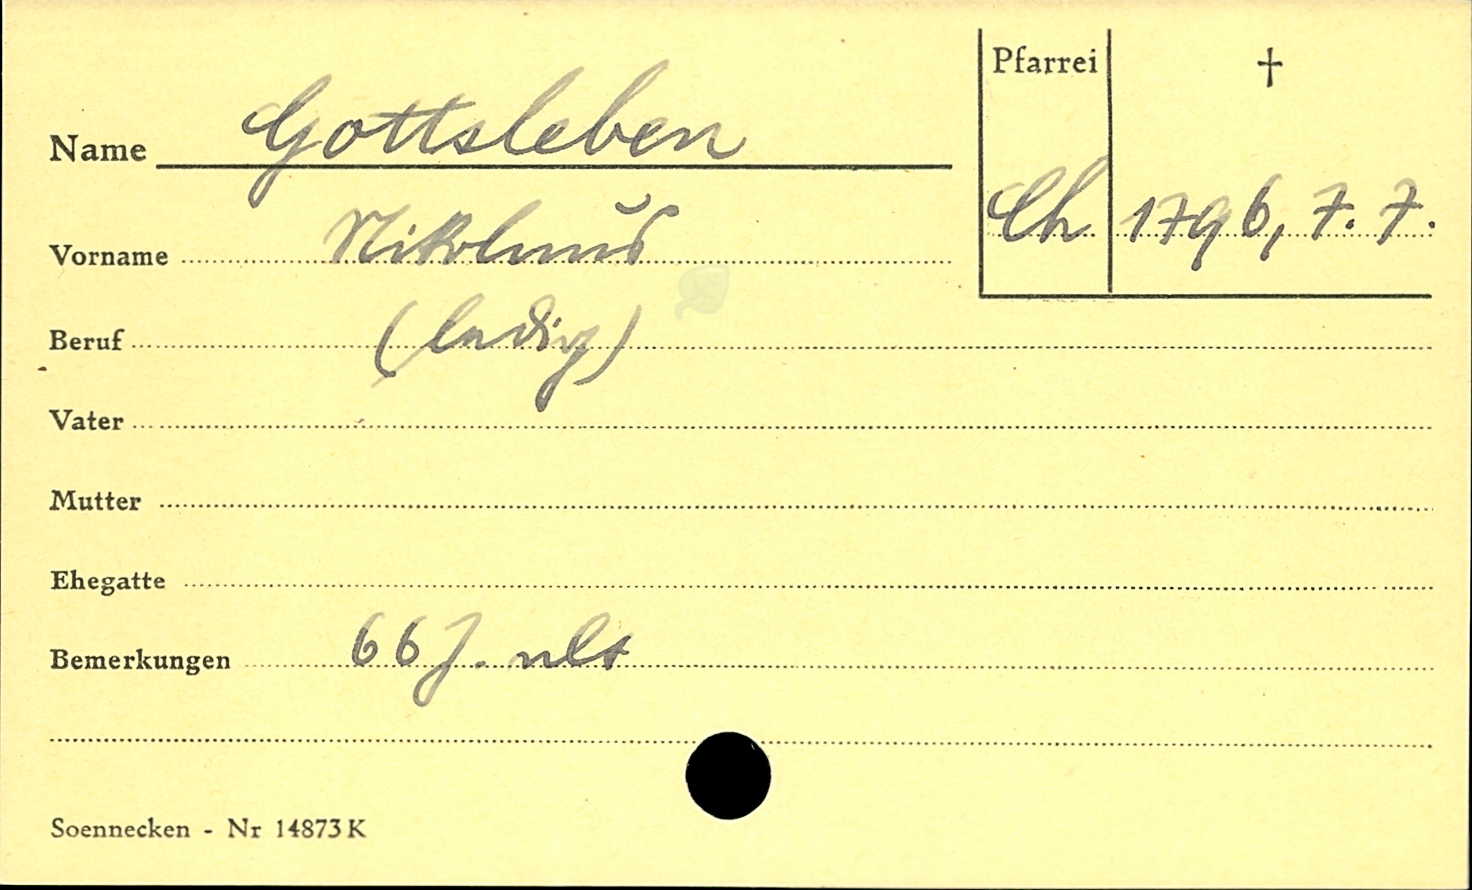 Pfarrei †
Name Gottsleben
Ch 1796, 7. 7.
Vorname Nikolaus
Beruf (ledig)
Vater
Mutter
Ehegatte
Bemerkungen 66 J. alt
Soennecken - Nr 14873 K